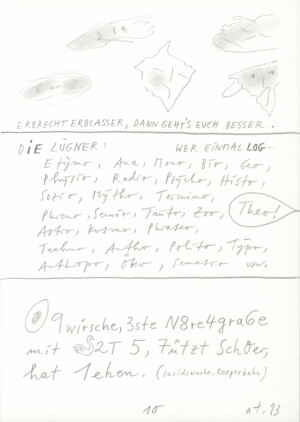 ERBRECHT ERBLASSER, DANN GEHT'S EUCH BESSER.
DIE LÜGNER: WER EINMAL LOG—
Etymo, Ana, Mono, Bio, Geo,
Physio, Radio, Psycho, Histo,
Sozio, Mytho, Termino,
Phreno, Semio, Tauto, Zoo, Theo!
Astro, Kosmo, Phraseo,
Techno, Antho, Polito, Typo,
Anthropo, Öko, Sematio usw.
9wirsche, 3ste N8re4gra6e
mit 2T 5, 7ützt
hat 1ehen. (Davidswache, Reeperbahn)
10 a+. 93